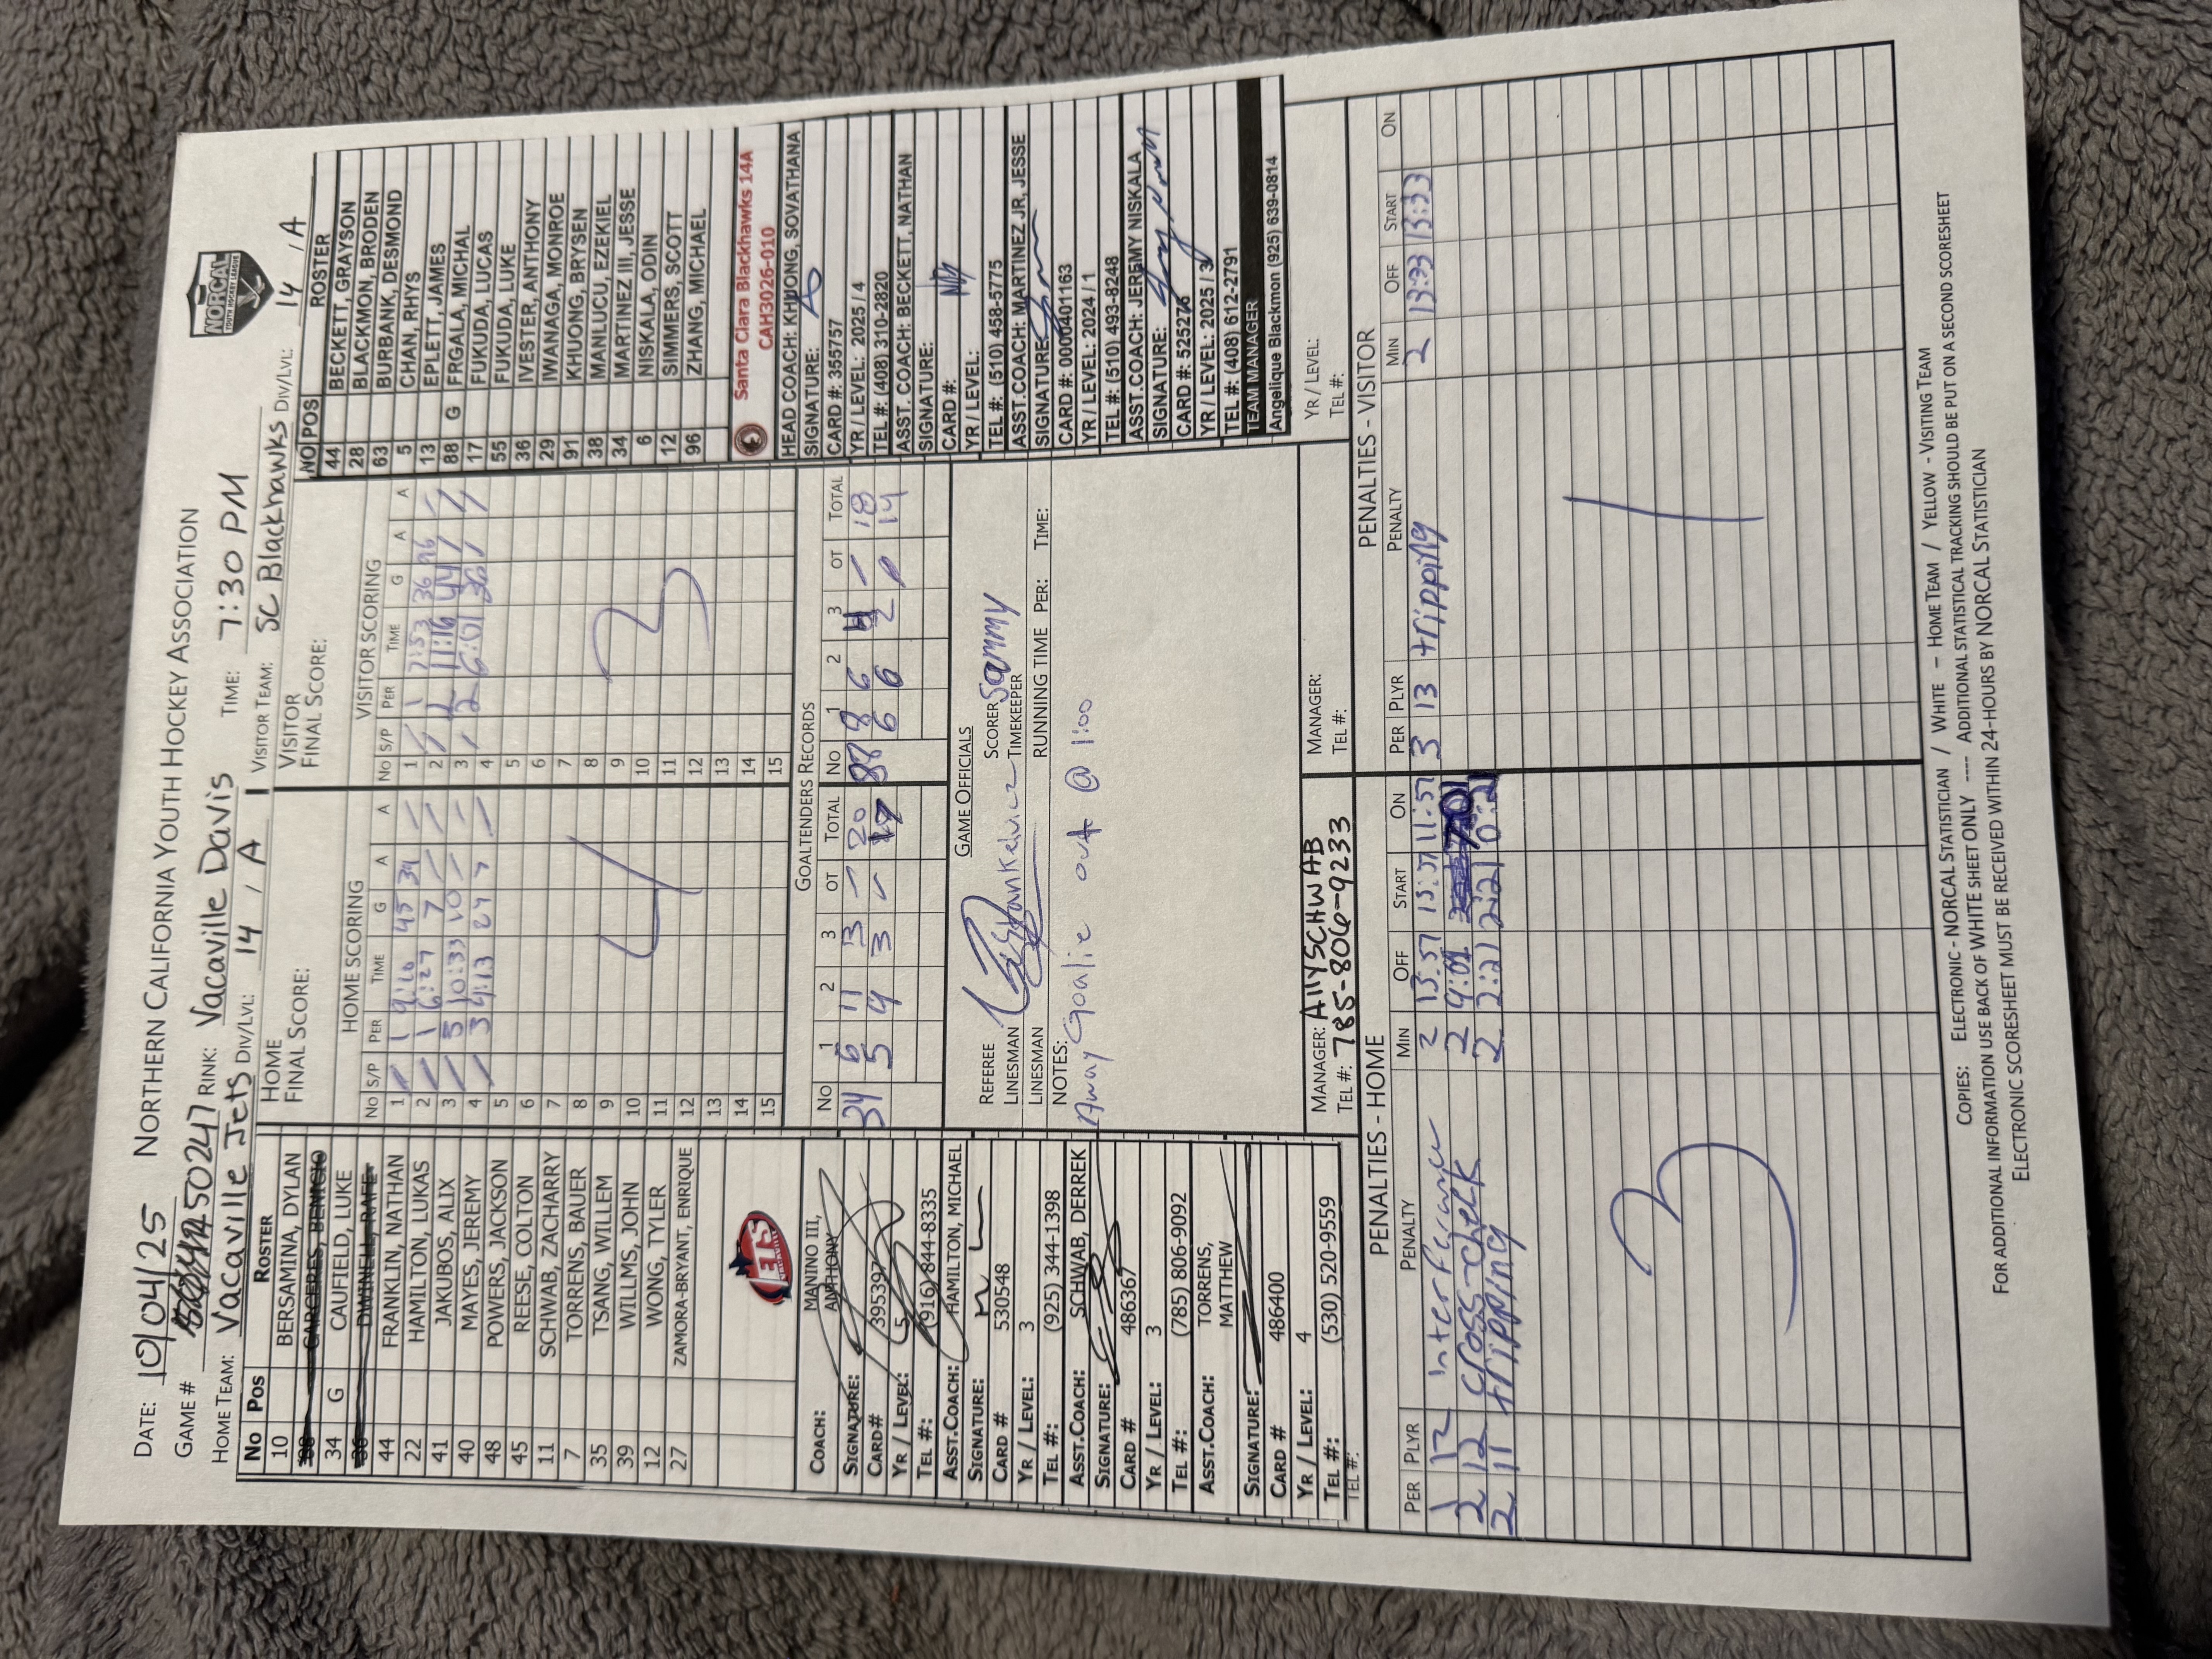 DATE: 10/04/25 NORTHERN CALIFORNIA YOUTH HOCKEY ASSOCIATION
NORCAL
YOUTH HOCKEY LEAGUE
GAME # 50247 RINK: Vacaville Davis TIME: 7:30 PM
HOME TEAM: Vacaville Jets DIV/LVL: 14 / A VISITOR TEAM: SC Blackhawks DIV/LVL: 14 / A
NO POS ROSTER
10 BERSAMINA, DYLAN
38 CARCERES, BENICIO
34 G CAUFIELD, LUKE
36 DWINELL, RAFE
44 FRANKLIN, NATHAN
22 HAMILTON, LUKAS
41 JAKUBOS, ALIX
40 MAYES, JEREMY
48 POWERS, JACKSON
45 REESE, COLTON
11 SCHWAB, ZACHARRY
7 TORRENS, BAUER
35 TSANG, WILLEM
39 WILLMS, JOHN
12 WONG, TYLER
27 ZAMORA-BRYANT, ENRIQUE
JETS
COACH: MANINO III, ANTHONY
SIGNATURE:
CARD# 395397
YR / LEVEL: 5
TEL #: (916) 844-8335
ASST.COACH: HAMILTON, MICHAEL
SIGNATURE:
CARD # 530548
YR / LEVEL: 3
TEL #: (925) 344-1398
ASST.COACH: SCHWAB, DERREK
SIGNATURE:
CARD # 486367
YR / LEVEL: 3
TEL #: (785) 806-9092
ASST.COACH: TORRENS, MATTHEW
SIGNATURE:
CARD # 486400
YR / LEVEL: 4
TEL #: (530) 520-9559
TEL #:
HOME
FINAL SCORE:
HOME SCORING
NO S/P PER TIME G A A
1 / 1 9:16 45 39 /
2 / 1 6:27 7 / /
3 / 3 10:33 10 / /
4 / 3 4:13 27 7 /
5
6
7
8
9
10
11
12
13
14
15
4
VISITOR
FINAL SCORE:
VISITOR SCORING
NO S/P PER TIME G A A
1 / 1 7:53 36 96 /
2 / 2 11:16 44 / /
3 / 2 6:01 36 / /
4
5
6
7
8
9
10
11
12
13
14
15
3
GOALTENDERS RECORDS
NO 1 2 3 OT TOTAL NO 1 2 3 OT TOTAL
34 6 11 3 / 20 88 8 6 4 / 18
5 9 3 / 17 6 6 2 0 14
GAME OFFICIALS
REFEREE SCORER Sammy
LINESMAN TIMEKEEPER
LINESMAN RUNNING TIME PER: TIME:
NOTES:
Away Goalie out @ 1:00
MANAGER: Ally SCHWAB
TEL #: 785-806-9233
MANAGER:
TEL #:
NO POS ROSTER
44 BECKETT, GRAYSON
28 BLACKMON, BRODEN
63 BURBANK, DESMOND
5 CHAN, RHYS
13 EPLETT, JAMES
88 G FRGALA, MICHAL
17 FUKUDA, LUCAS
55 FUKUDA, LUKE
36 IVESTER, ANTHONY
29 IWANAGA, MONROE
91 KHUONG, BRYSEN
38 MANLUCU, EZEKIEL
34 MARTINEZ III, JESSE
6 NISKALA, ODIN
12 SIMMERS, SCOTT
96 ZHANG, MICHAEL
Santa Clara Blackhawks 14A
CAH3026-010
HEAD COACH: KHUONG, SOVATHANA
SIGNATURE:
CARD #: 355757
YR / LEVEL: 2025 / 4
TEL #: (408) 310-2820
ASST. COACH: BECKETT, NATHAN
SIGNATURE:
CARD #:
YR / LEVEL:
TEL #: (510) 458-5775
ASST.COACH: MARTINEZ JR, JESSE
SIGNATURE:
CARD #: 0000401163
YR / LEVEL: 2024 / 1
TEL #: (510) 493-8248
ASST.COACH: JEREMY NISKALA
SIGNATURE:
CARD #: 525276
YR / LEVEL: 2025 / 3
TEL #: (408) 612-2791
TEAM MANAGER
Angelique Blackmon (925) 639-0814
YR / LEVEL:
TEL #:
PENALTIES - HOME
PER PLYR PENALTY MIN OFF START ON
1 12 interference 2 13:57 13:57 11:57
2 12 cross-check 2 4:01
2 11 tripping 2 2:21 2:21 0:21
3
PENALTIES - VISITOR
PER PLYR PENALTY MIN OFF START ON
3 13 tripping 2 13:33 13:33
1
COPIES: ELECTRONIC - NORCAL STATISTICIAN / WHITE – HOME TEAM / YELLOW - VISITING TEAM
FOR ADDITIONAL INFORMATION USE BACK OF WHITE SHEET ONLY ---- ADDITIONAL STATISTICAL TRACKING SHOULD BE PUT ON A SECOND SCORESHEET
ELECTRONIC SCORESHEET MUST BE RECEIVED WITHIN 24-HOURS BY NORCAL STATISTICIAN